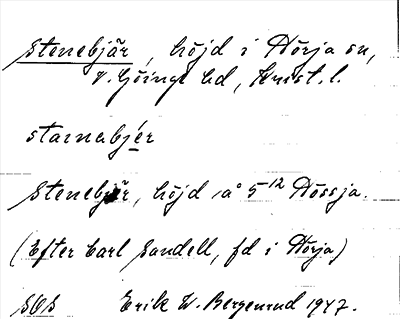 Stenebjär, höjd i Nörja sn,
V. Göinge hd, Krist. l.
starnabjer
Stenebjär, höjd å 5¹² Nössja.
(Efter Carl Sandell, fd i Nörja)
SOS Erik W. Bergenrud 1947.